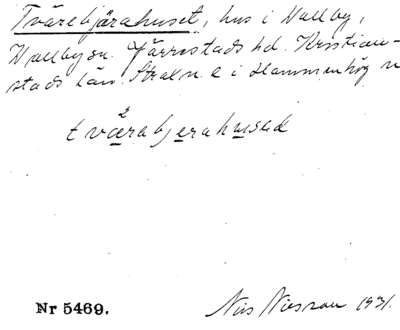 Tvärebjärahuset, hus i Vallby,
Vallby sn. Järrestads hd. Kristian-
stads län. Strax n e i Hammenhög n
tvärabjerahused
Nr 5469.
Nils Nilsson 1931.